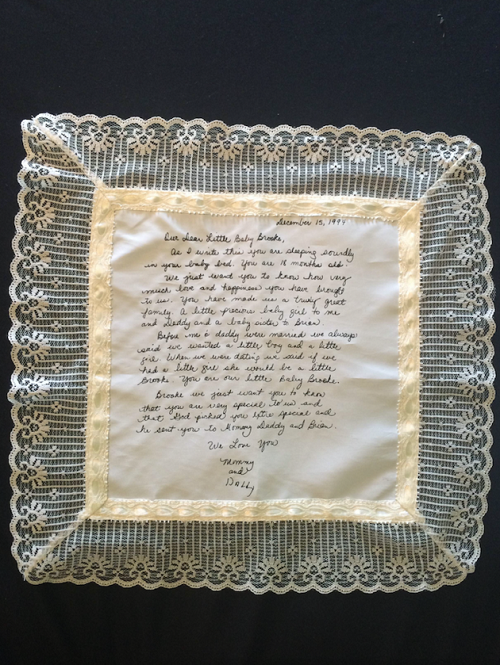 December 15, 1999
Our Dear Little Baby Brooke,
As I write this you are sleeping soundly
in your baby bed. You are 18 months old.
We just want you to know how very
much love and happiness you have brought
to us. You have made us a truly great
family. A little precious baby girl to me
and Daddy and a baby sister to Brian
Before me & daddy were married we always
said we wanted a little boy and a little
girl. When we were dating we said if we
had a little girl she would be a little
Brooke. You are our little Baby Brooke.
Brooke we just want you to know
that you are very special to us and
that God picked you extra special and
he sent you to Mommy Daddy and Brian.
We Love You
Mommy
and
Daddy